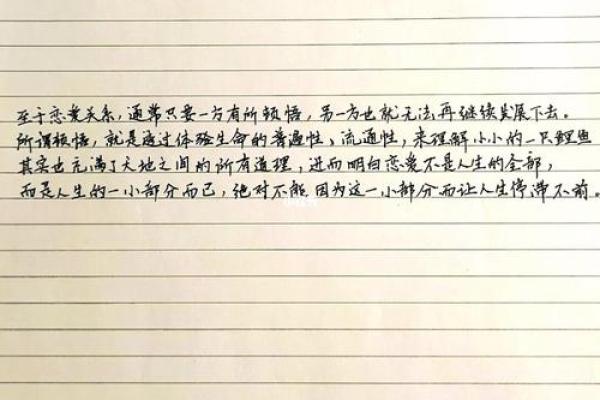 至于恋爱关系，通常只要一方有所顿悟，另一方也就无法再继续发展下去。
所谓顿悟，就是透过体验生命的普遍性、流通性，来理解小小的一只鲤鱼
其实也充满了天地之间的所有道理，进而明白恋爱不是人生的全部，
而是人生的一小部分而已，绝对不能因为这一小部分而让人生停滞不前。